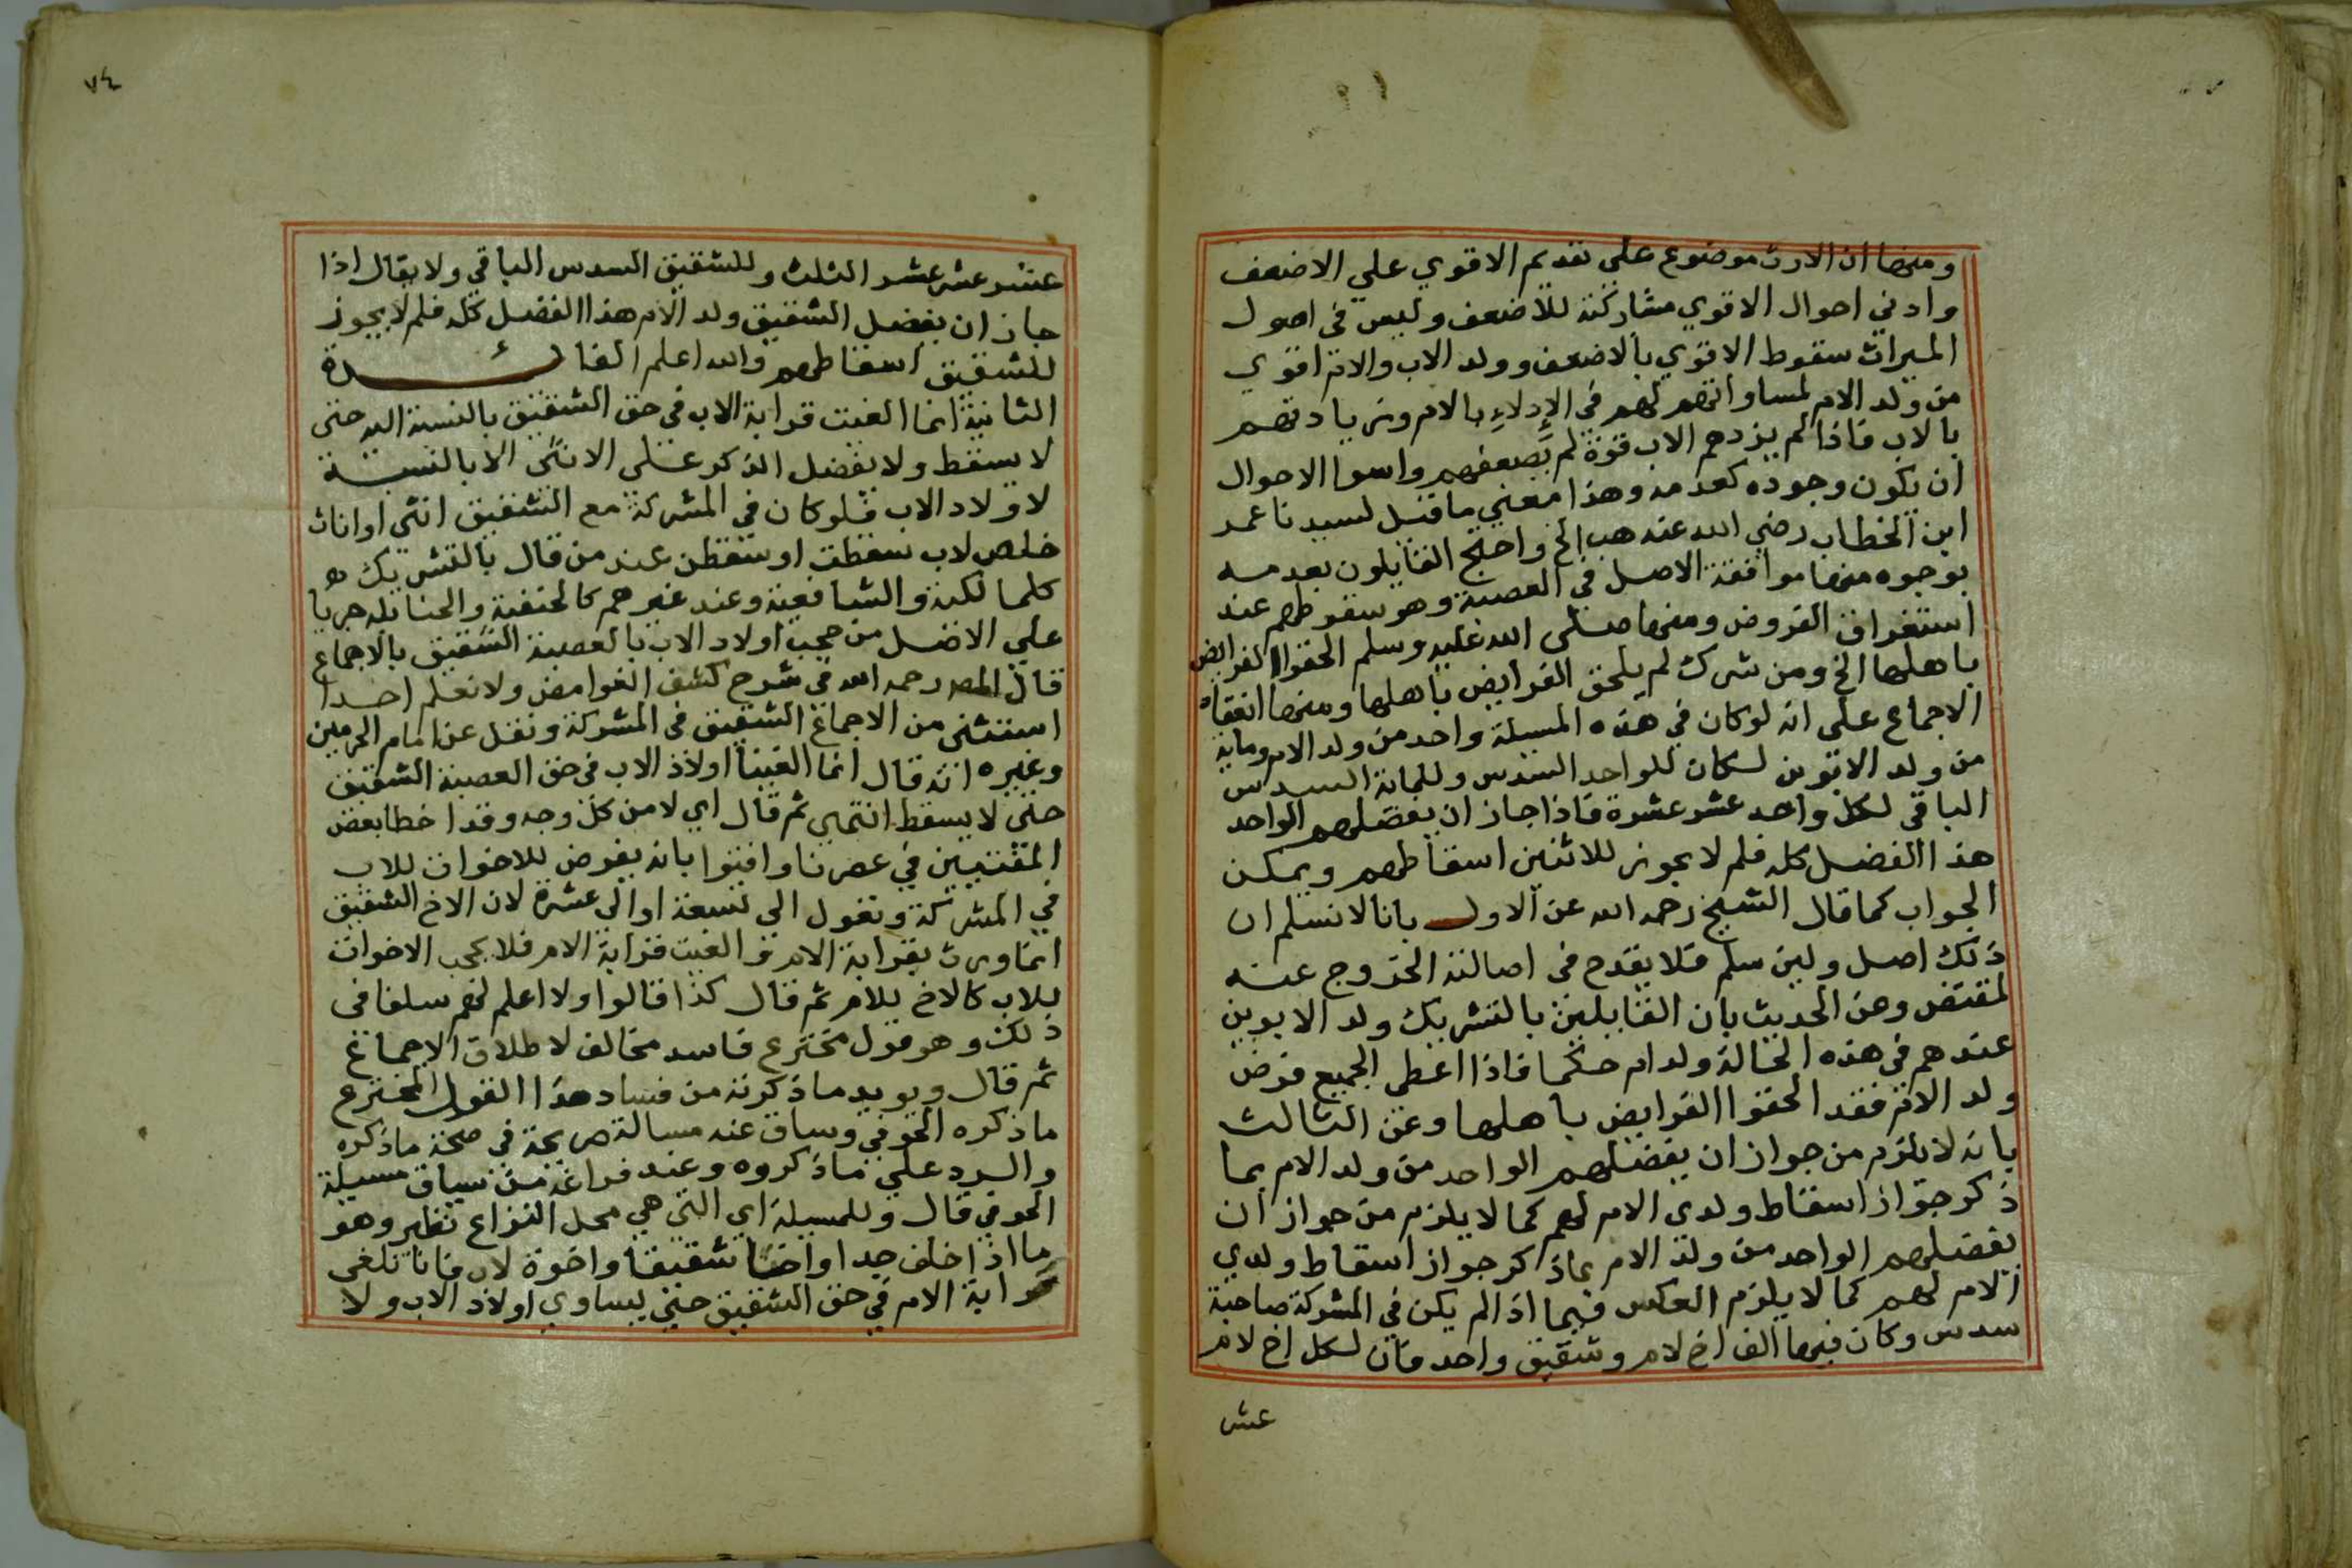 ومنها ان الارث موضوع على تقديم الاقوي علي الاضعف
وادني احوال الاقوي مشاركته للاضعف وليس في اصول
الميراث سقوط الاقوي بالاضعف وولد الاب والام اقوي
من ولد الام لمساواتهم لهم في الإدلاءِ بالام وزيادتهم
بالاب فاذا لم يزدهم الاب قوة لم يضعفهم واسوا الاحوال
ان يكون وجوده كعدمه وهذا معني ما قيل لسيدنا عمر
ابن الخطاب رضي الله عنه هب الخ واحتج القايلون بعدمه
بوجوه منها موافقة الاصل في العصبة وهو سقوطهم عند
استغراق الفروض ومنها صلى الله عليه وسلم الحقوا الفرايض
باهلها الخ ومن شرك لم يلحق الفرايض باهلها ومنها انعقاد
الاجماع على انه لو كان في هذه المسيلة واحد من ولد الام وماية
من ولد الابوين لكان للواحد السدس وللماية السدس
الباقي لكل واحد عشر عشرة فاذا جاز ان يفضلهم الواحد
هذا الفضل كله فلم لا يجوز للاثنين اسقاطهم ويمكن
الجواب كما قال الشيخ رحمه الله عن الاول بانا لا نسلم ان
ذلك اصل ولين سلم فلا يقدح في اصالته الخروج عنه
لمقتض وعن الحديث بان القايلين بالتشريك ولد الابوين
عندهم في هذه الحالة ولد ام حكما فاذا اعطى الجميع فرض
ولد الام فقد الحقوا الفرايض باهلها وعن الثالث
بانه لا يلزم من جواز ان يفضلهم الواحد من ولد الام بما
ذكر جواز اسقاط ولدي الام لهم كما لا يلزم من جواز ان
يفضلهم الواحد من ولد الام بما ذكر جواز اسقاط ولدي
الام لهم كما لا يلزم العكس فيما اذا لم يكن في المشركة صاحبة
سدس وكان فيها الف اخ لام وشقيق واحد فان لكل اخ لام
عشر
٧٤
عشر عشر عشر الثلث وللشقيق السدس الباقي ولا يقال اذا
جاز ان يفضل الشقيق ولد الام هذا الفضل كله فلم لا يجوز
للشقيق اسقاطهم والله اعلم الفائدة
الثانية انما الغيت قرابة الاب في حق الشقيق بالنسبة اليه حتى
لا يسقط ولا يفضل الذكر على الانثى الا بالنسبة
لاولاد الاب فلو كان في المشركة مع الشقيق انثى او اناث
خلص لاب سقطت او سقطن عند من قال بالتشريك
كالمالكية والشافعية وعند غيرهم كالحنفية والحنابلة جريا
علي الاصل من حجب اولاد الاب بالعصبة الشقيق بالاجماع
قال المصه رحمه الله في شرح كشف الغوامض ولا نعلم احدا
استثنى من الاجماع الشقيق في المشركة ونقل عن امام الحرمين
وغيره انه قال انما الغينا اولاد الاب في حق العصبة الشقيق
حتى لا يسقط انتهى ثم قال اي لا من كل وجه وقد اخطا بعض
المفتيين في عصرنا وافتوا بانه يفرض للاخوات للاب
في المشركة وتعول الى تسعة او الى عشرة لان الاخ الشقيق
انما ورث بقرابة الام و الغيت قرابة الام فلا يحجب الاخوات
للاب كالاخ للام ثم قال كذا قالوا ولا اعلم لهم سلفا في
ذلك وهو قول مخترع فاسد مخالف لاطلاق الاجماع
ثم قال ويويد ما ذكرته من فساد هذا القول المخترع
ما ذكره الحوفي وساق عنه مسالة صريحة في صحة ما ذكره
والرد علي ما ذكروه وعند فراغه من سياق مسيلة
الحوفي قال وللمسيلة اي التي هي محل النزاع نظير وهو
ما اذا خلف جدا واخا شقيقا واخوة لاب فانا نلغي
قرابة الام في حق الشقيق حتى يساوي اولاد الاب ولا